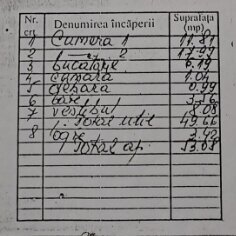 Nr. crt. Denumirea încăperii Suprafața (mp)
1 Camera 1 11.81
2 —"— 2 17.97
3 bucătărie 6.19
4 cămară 1.04
5 debara 0.99
6 baie 3.36
7 vestibul 8.08
1. Total utile 49.66
8 logie 3.42
Total ap. 53.08